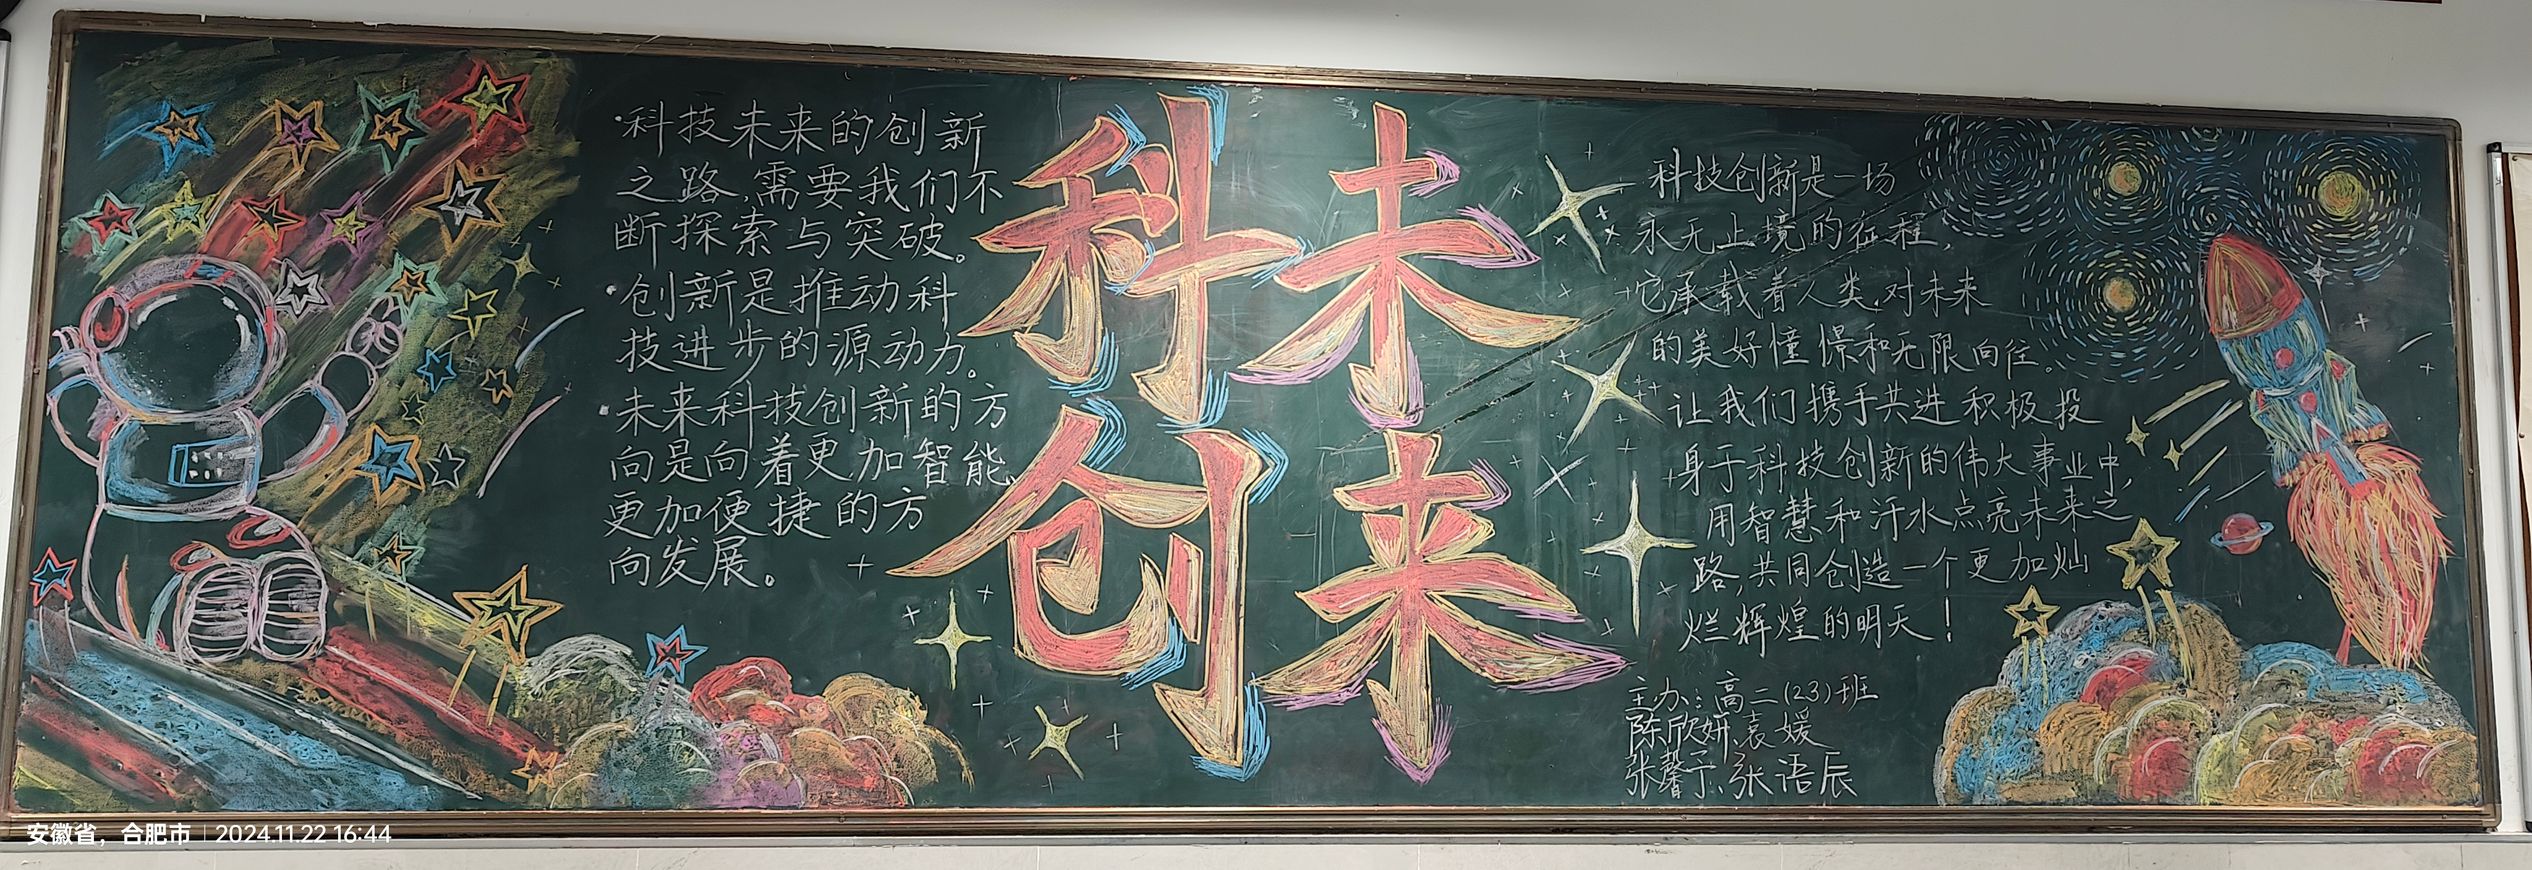 ·科技未来的创新
之路,需要我们不
断探索与突破。
·创新是推动科
技进步的源动力。
·未来科技创新的方
向是向着更加智能、
更加便捷的方
向发展。
科未
创来
科技创新是一场
永无止境的征程,
它承载着人类对未来
的美好憧憬和无限向往。
让我们携手共进积极投
身于科技创新的伟大事业中,
用智慧和汗水点亮未来之
路,共同创造一个更加灿
烂辉煌的明天!
主办:高二(23)班
陈欣妍、袁媛
张馨予、张语辰
安徽省，合肥市 | 2024.11.22 16:44